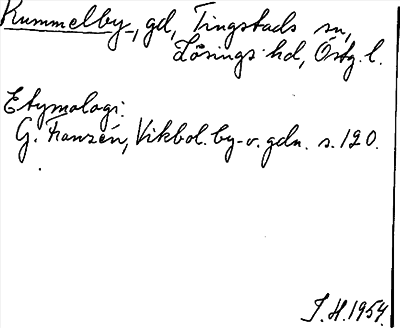 Kummelby, gd, Tingstads sn,
Lösings hd, Östg. l.
Etymologi:
G. Franzén, Vikbol. by- o. gdn. s. 120.
J. H. 1954.